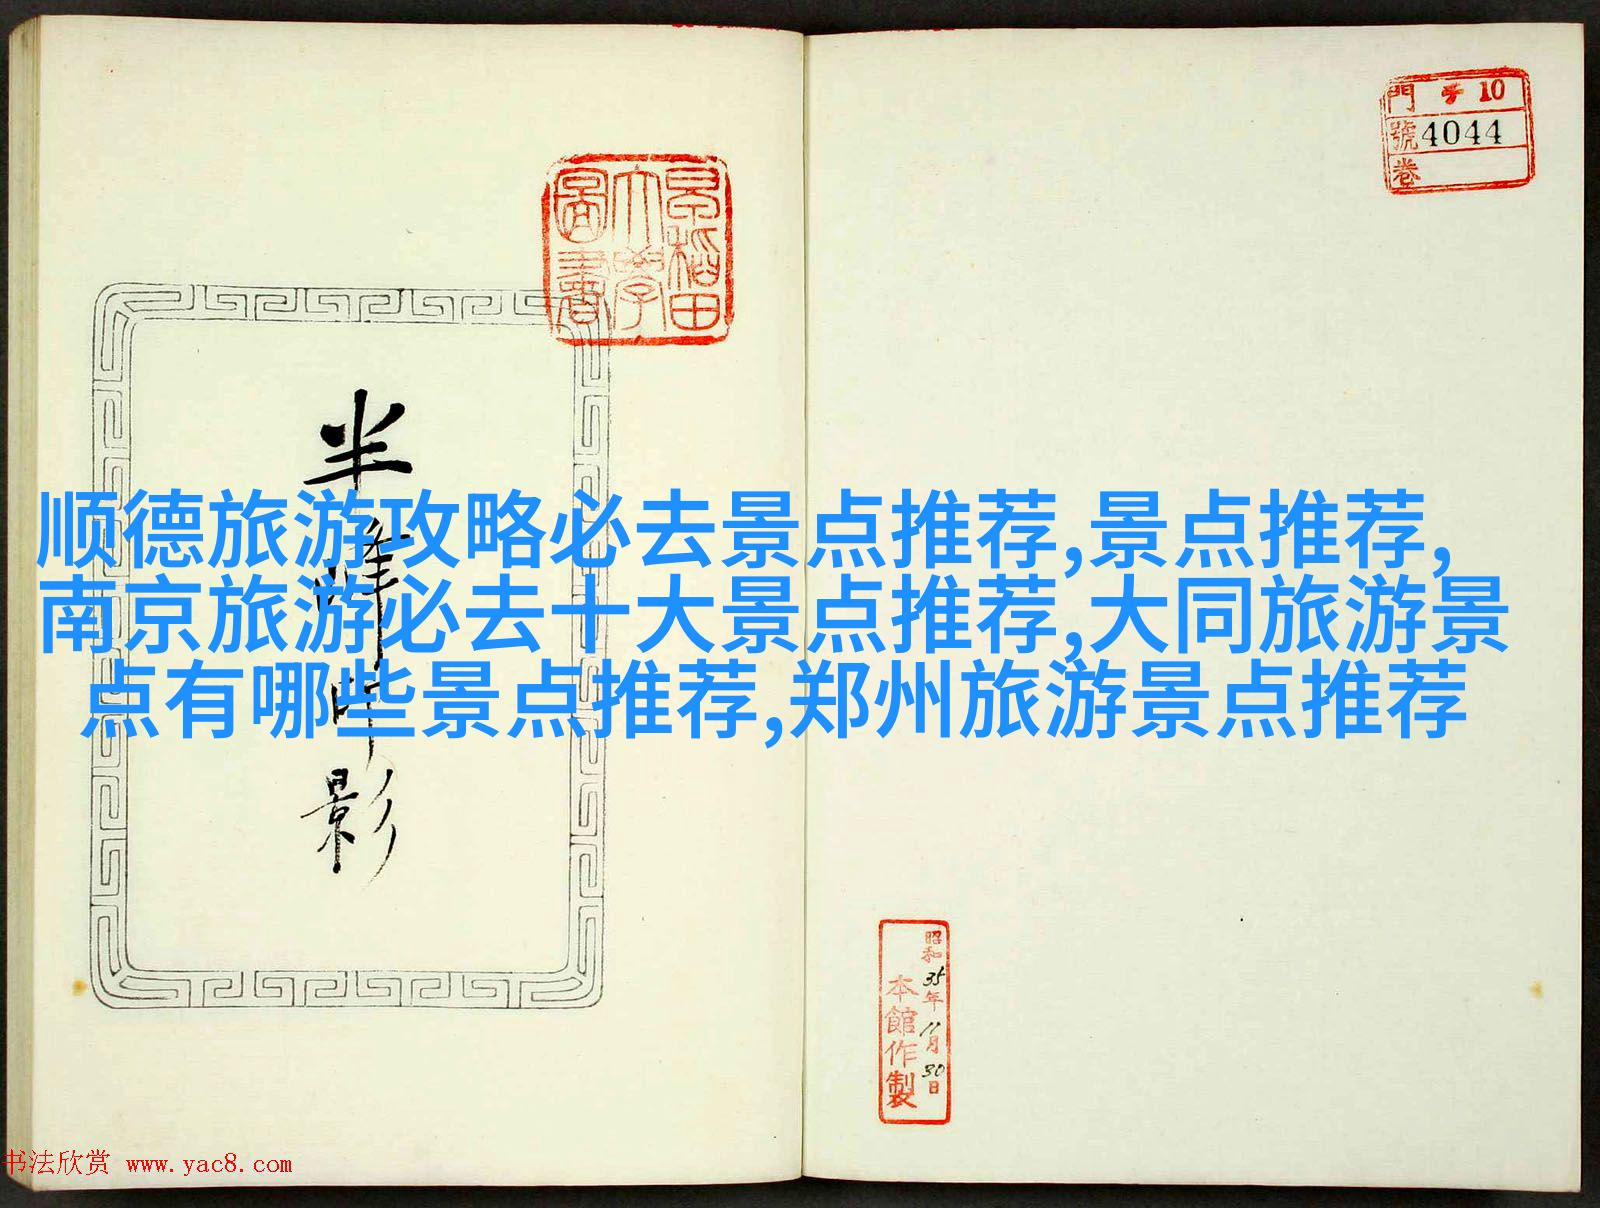 門 10
號4044
卷
早稲田
大學
圖書
顺德旅游攻略必去景点推荐,景点推荐,
南京旅游必去十大景点推荐,大同旅游景
点有哪些景点推荐,郑州旅游景点推荐
半
峰
印
影
昭和35年11月30日
本館作製
书法欣赏 www.yac8.com